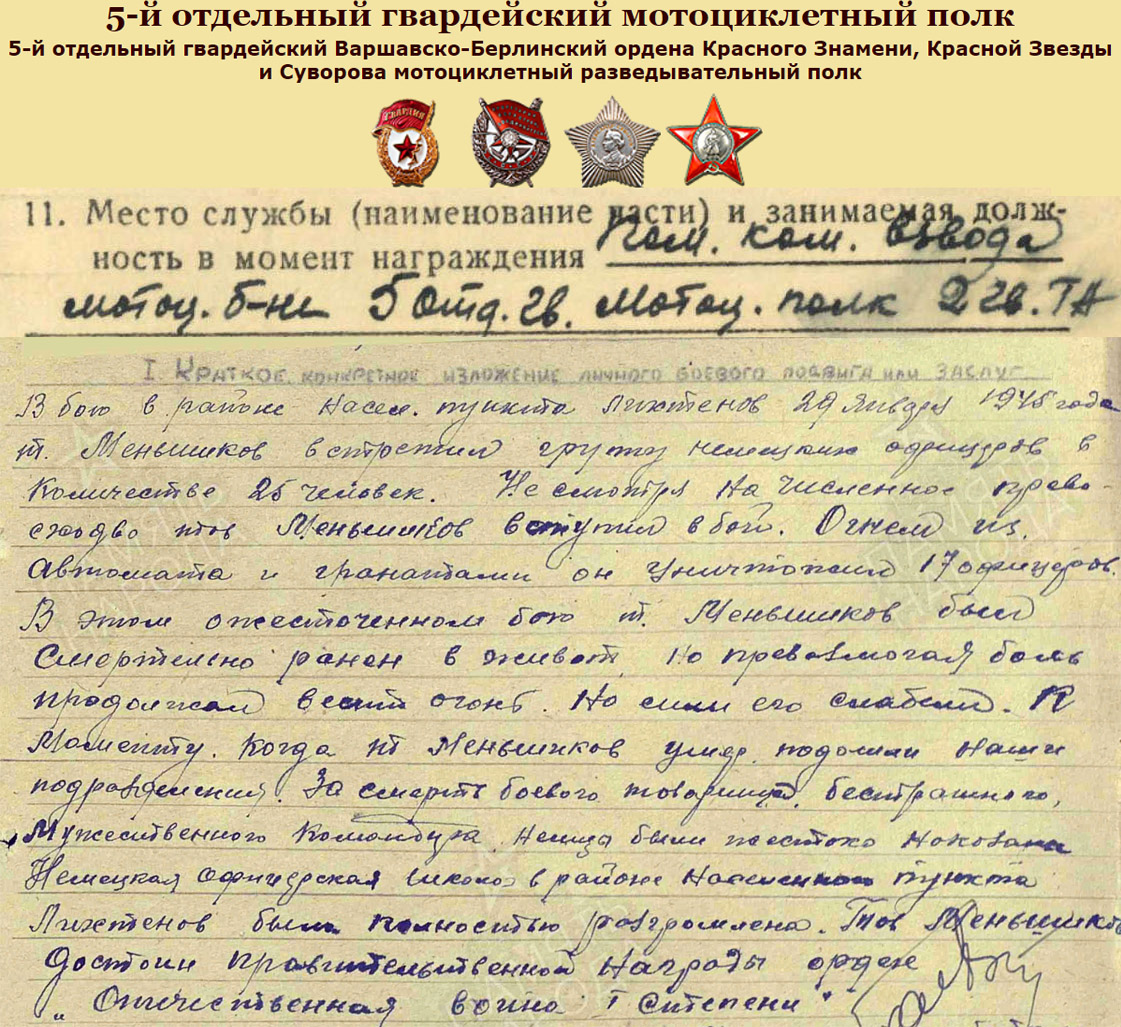 5-й отдельный гвардейский мотоциклетный полк
5-й отдельный гвардейский Варшавско-Берлинский ордена Красного Знамени, Красной Звезды
и Суворова мотоциклетный разведывательный полк
ГВАРДИЯ
11. Место службы (наименование части) и занимаемая долж-
ность в момент награждения Пом. ком. взвода
мотоц. б-на 5 Отд. гв. Мотоц. полк 2 гв. ТА
I. Краткое, конкретное изложение личного боевого подвига или заслуг
В бою в районе насел. пункта Лихтенов 29 января 1945 года
т. Меньшиков встретил группу немецких офицеров в
количестве 25 человек. Не смотря на численное прево-
сходво тов Меньшиков вступил в бой. Огнем из
автомата и гранатами он уничтожил 17 офицеров.
В этом ожесточенном бою т. Меньшиков был
смертельно ранен в живот но превозмогая боль
продолжал вести огонь. Но силы его слабели. К
моменту. Когда т Меньшиков умер подошли наши
подразделения. За смерть боевого товарища, бесстрашного,
мужественного командира немцы были жестоко наказаны
Немецкая офицерская школа в районе населенного пункта
Лихтенов была полностью разгромлена. Тов Меньшиков
достоин правительственной награды орден
„Отечественная война I степени"